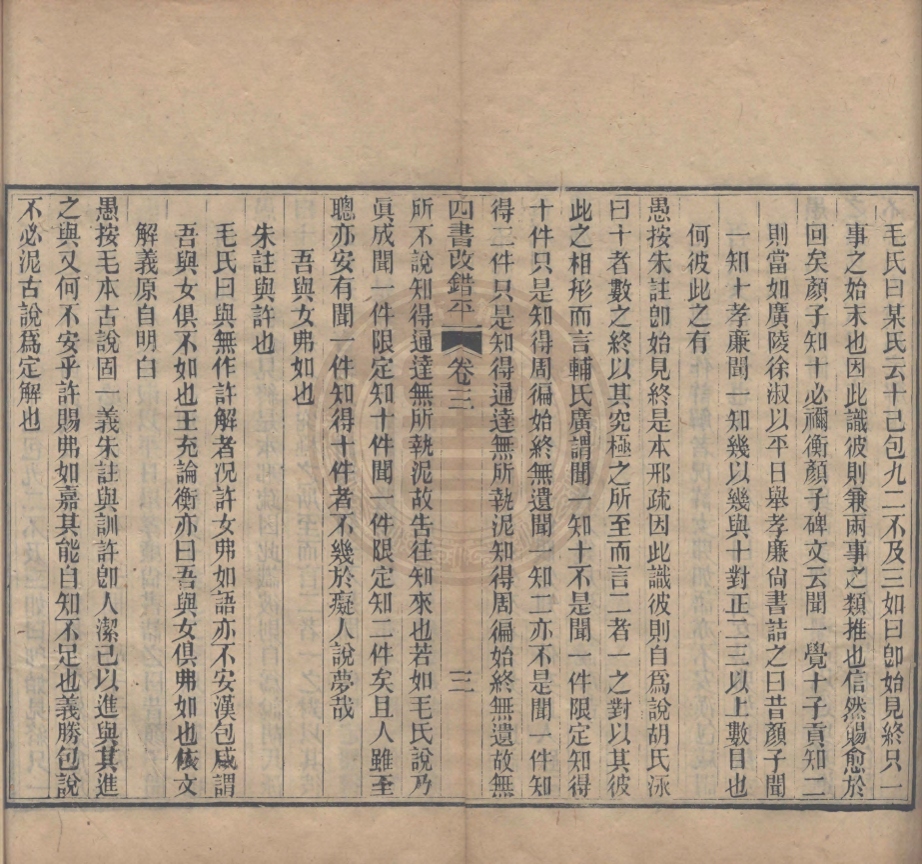 毛氏曰某氏云十已包九二不及三如曰卽始見終只一
事之始末也因此識彼則兼兩事之類推也信然賜愈於
回矣顏子知十必禰衡顏子碑文云聞一覺十子貢知二
則當如廣陵徐淑以平日舉孝廉尙書詰之曰昔顏子聞
一知十孝廉聞一知幾以幾與十對正二三以上數目也
何彼此之有
愚按朱註卽始見終是本邢疏因此識彼則自爲說胡氏泳
曰十者數之終以其究極之所至而言二者一之對以其彼
此之相形而言輔氏廣謂聞一知十不是聞一件限定知得
十件只是知得周徧始終無遺聞一知二亦不是聞一件知
得二件只是知得通達無所執泥知得周徧始終無遺故無
四書改錯平 卷三 三
所不說知得通達無所執泥故告往知來也若如毛氏說乃
眞成聞一件限定知十件聞一件限定知二件矣且人雖至
聰亦安有聞一件知得十件者不幾於癡人說夢哉
吾與女弗如也
朱註與許也
毛氏曰與無作許解者況許女弗如語亦不安漢包咸謂
吾與女俱不如也王充論衡亦曰吾與女俱弗如也核文
解義原自明白
愚按毛本古說固一義朱註與訓許卽人潔己以進與其進
之與又何不安乎許賜弗如嘉其能自知不足也義勝包說
不必泥古說爲定解也